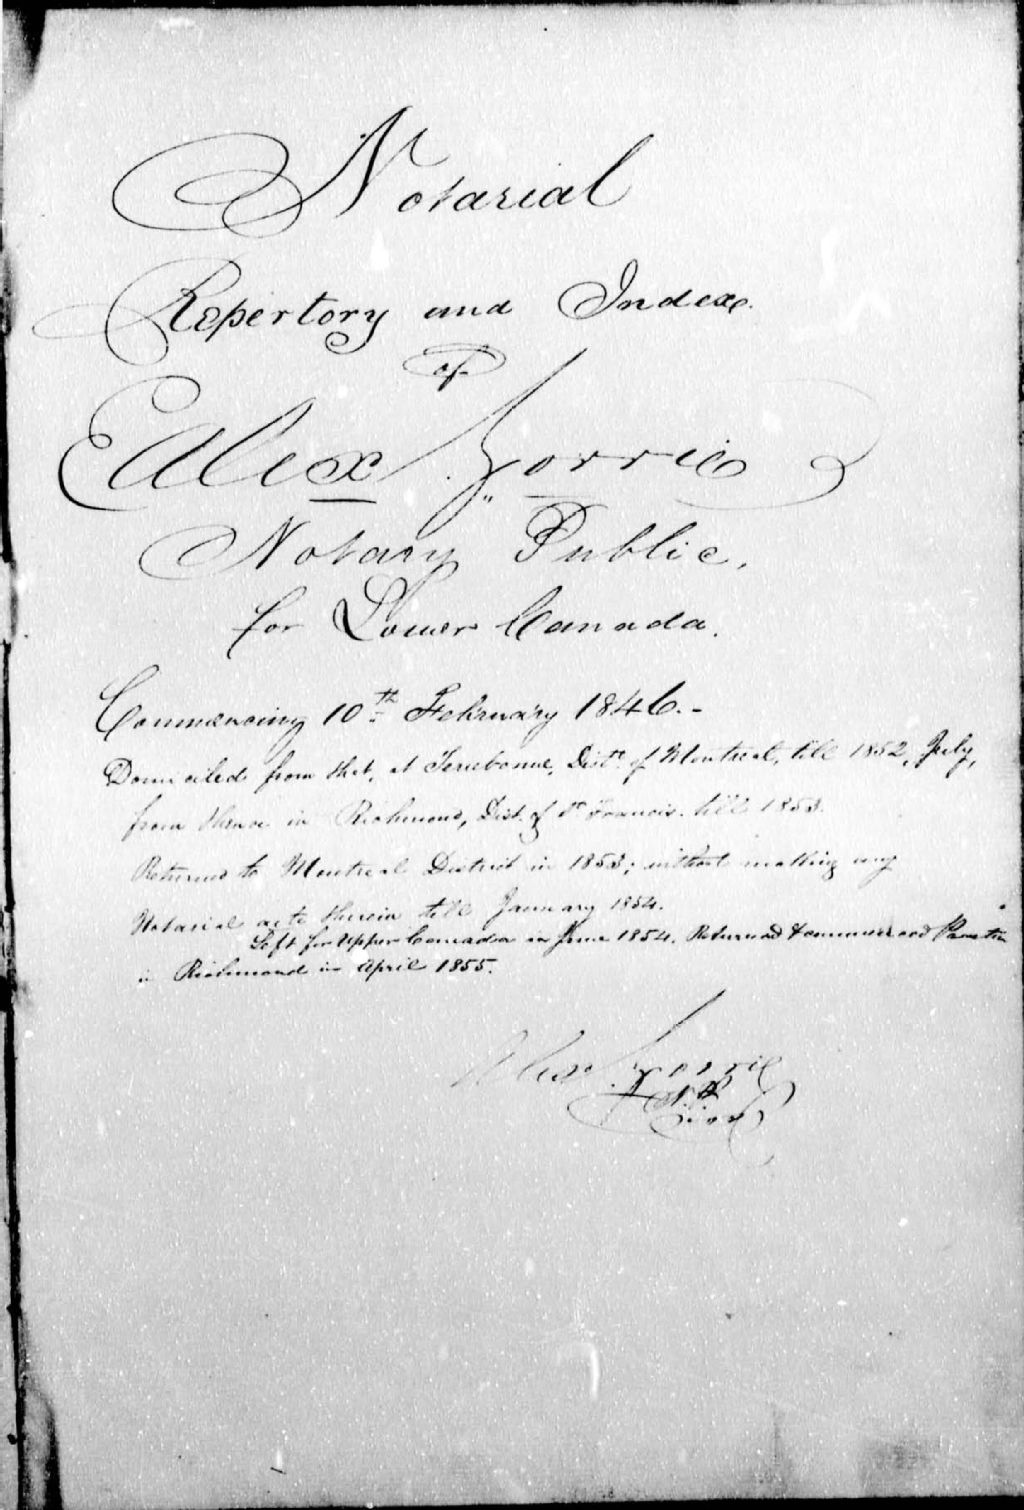 Notarial
Repertory and Index.
of
Alex Gorrie
Notary Public.
for Lower Canada.
Commencing 10th February 1846.-
Domiciled from that, at Terrebonne, Distt. of Montreal, till 1852, July,
from thence in Richmond, Dist. of St Francis. till 1853.
Returned to Montreal District in 1853; without making any
Notarial acts therein till January 1854.
Left for Upper Canada in June 1854. Returned & commenced Practice
in Richmond in April 1855.
Alex. Gorrie
N.P.